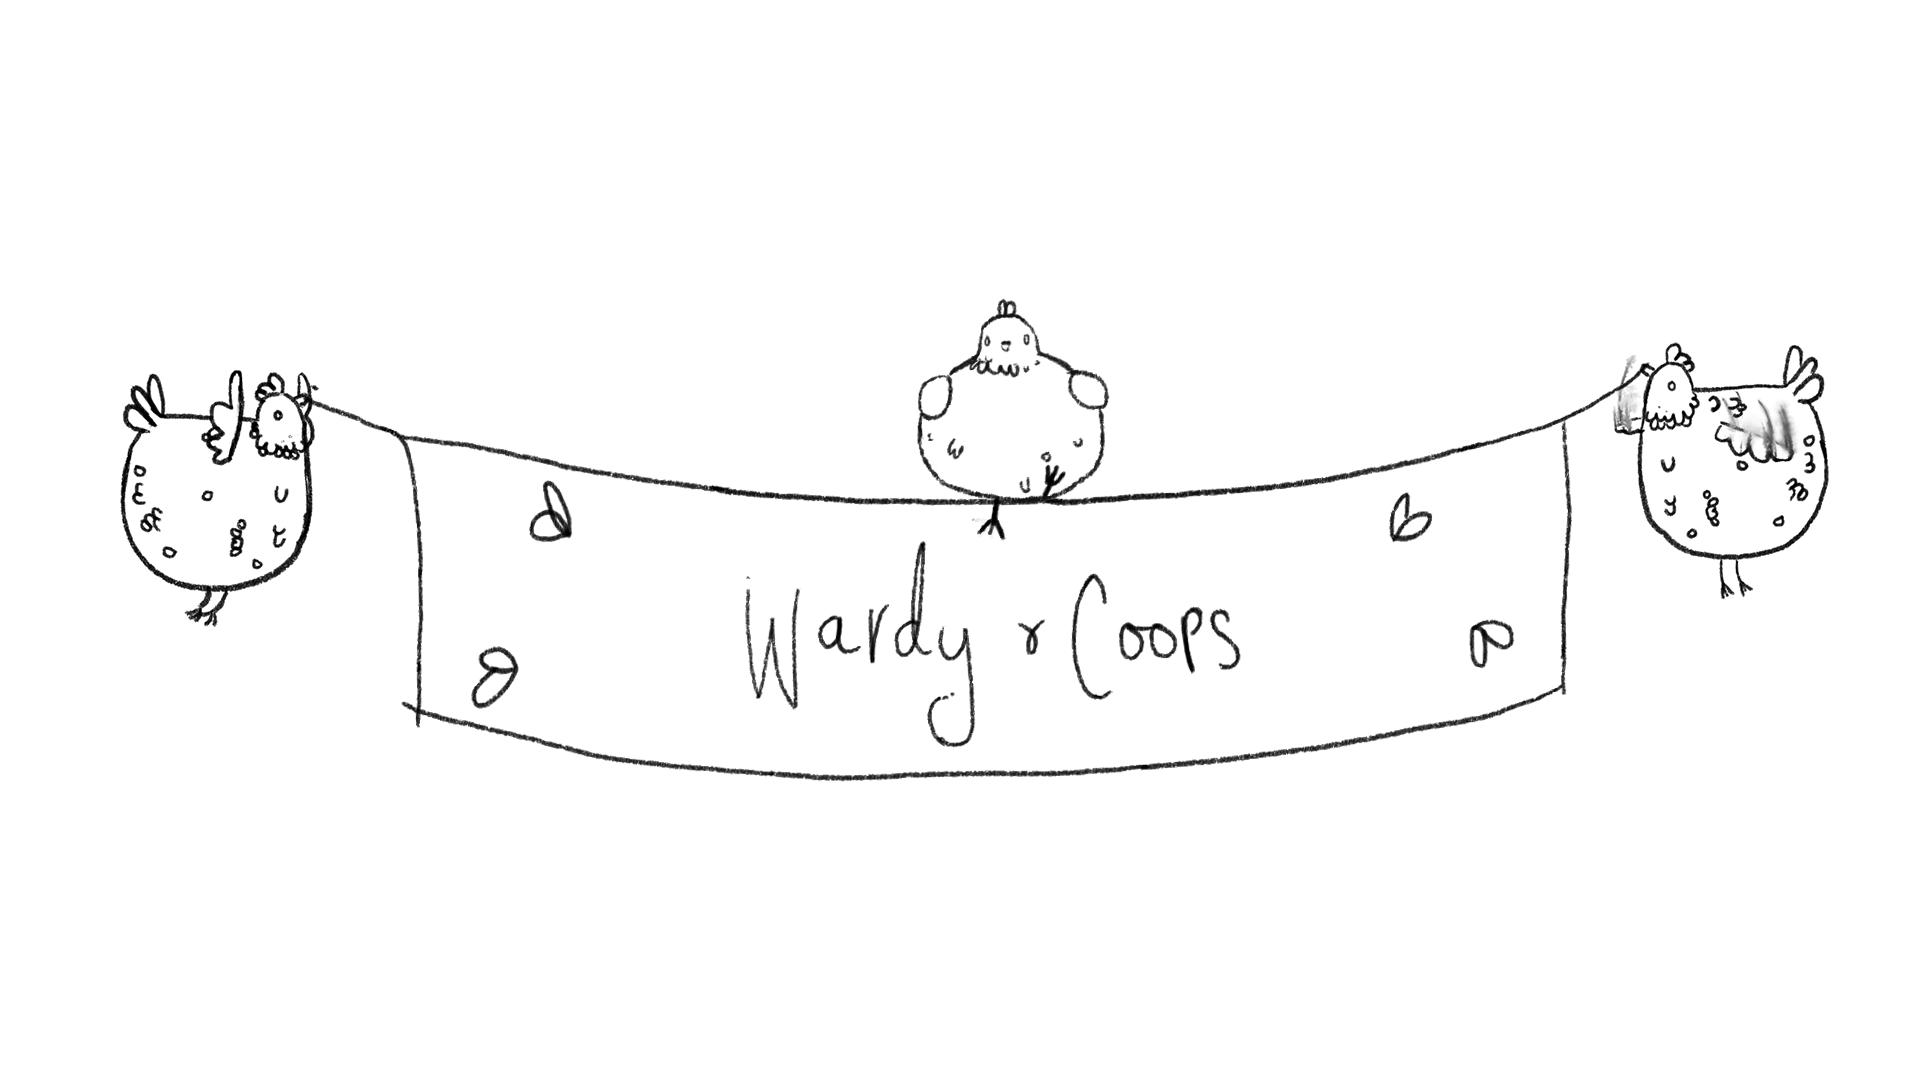 Wardy & Coops